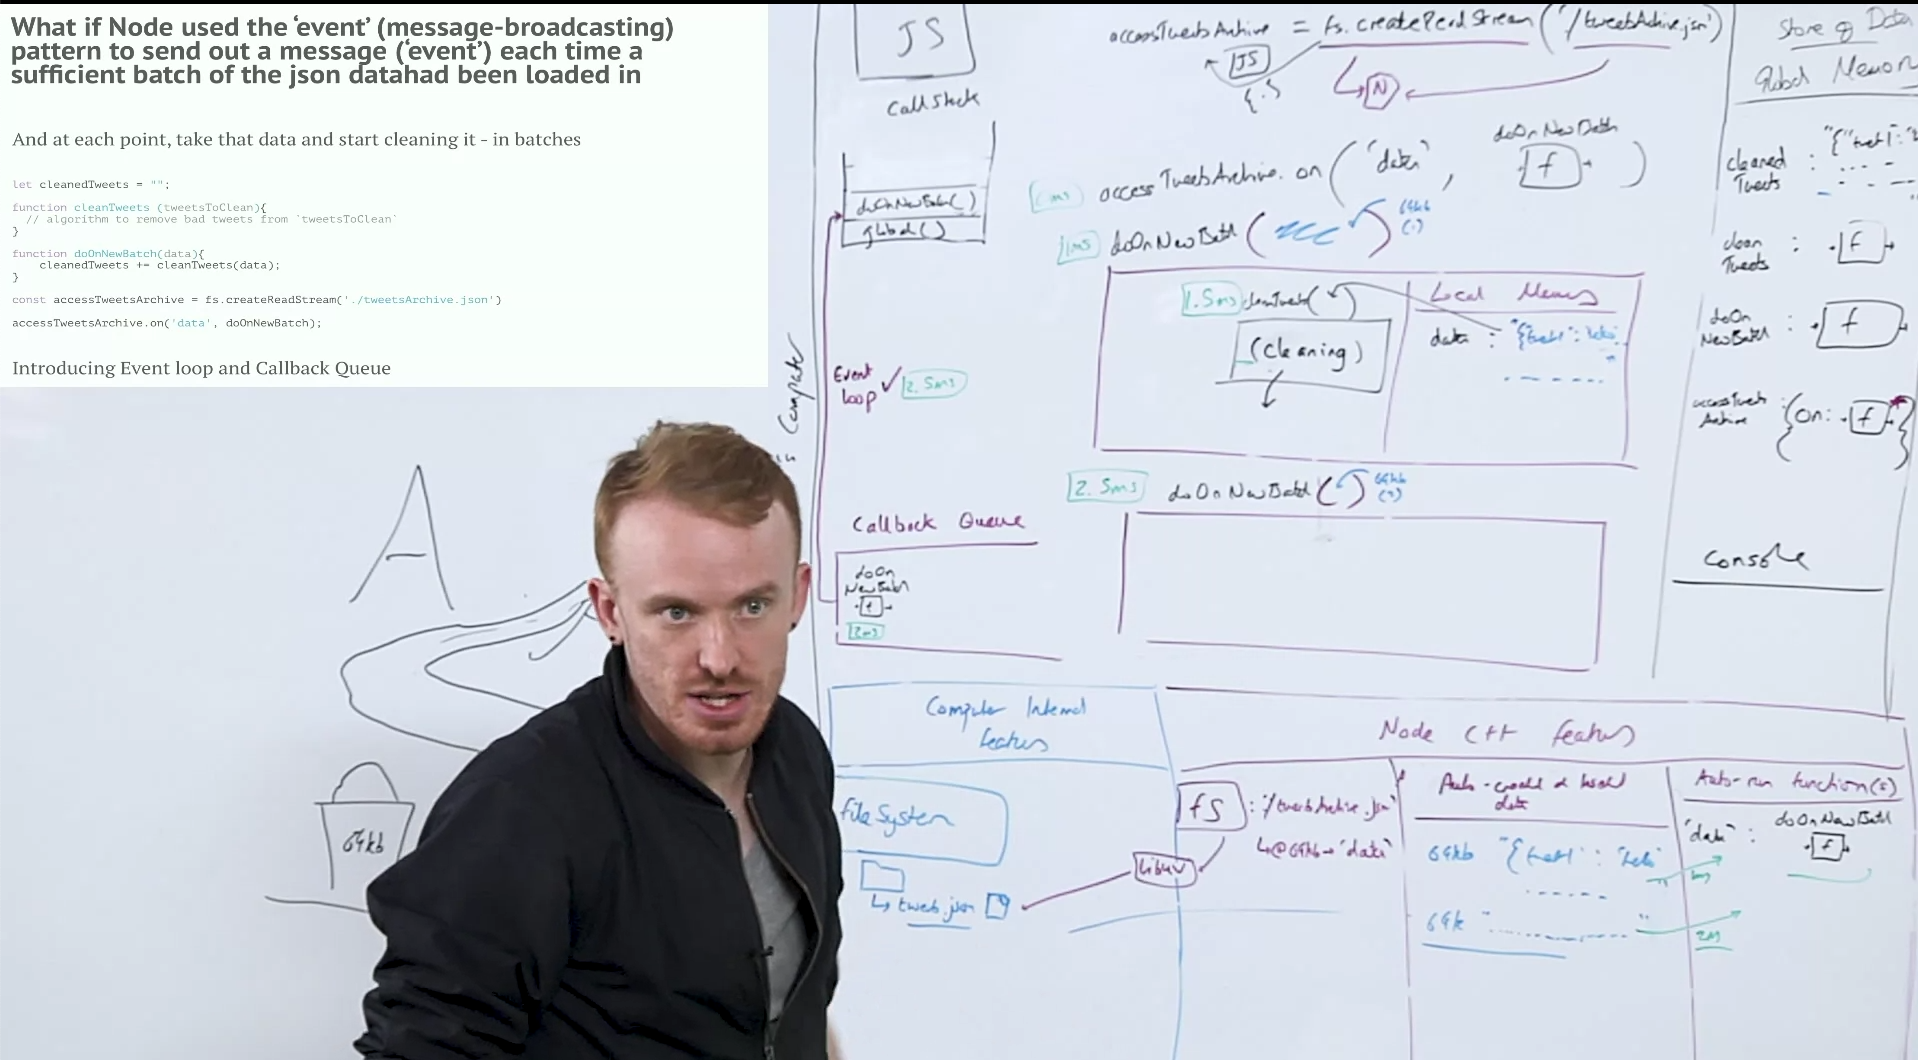 What if Node used the ‘event’ (message-broadcasting)
pattern to send out a message (‘event’) each time a
sufficient batch of the json datahad been loaded in
And at each point, take that data and start cleaning it - in batches
let cleanedTweets = "";
function cleanTweets (tweetsToClean){
// algorithm to remove bad tweets from `tweetsToClean`
}
function doOnNewBatch(data){
cleanedTweets += cleanTweets(data);
}
const accessTweetsArchive = fs.createReadStream('./tweetsArchive.json')
accessTweetsArchive.on('data', doOnNewBatch);
Introducing Event loop and Callback Queue
A
64kb
Computer
JS
Call Stack
doOnNewBatch()
global()
Event
loop ✓ 2.5ms
Callback Queue
doOn
NewBatch
f
2ms
accessTweetsArchive = fs.createReadStream('./tweetsArchive.json')
JS
{ . }
N
accessTweetsArchive.on('data', doOnNewBatch
f )
1ms doOnNewBatch( ) 64kb
1.5ms cleanTweets( )
(Cleaning)
Local Memory
data : "{tweet1":
2.5ms doOnNewBatch( ) 64kb
Store of Data
Global Memory
cleaned
Tweets : "{"tweet1":
clean
Tweets : f
doOn
NewBatch : f
accessTweets
Archive : { on: f }
Console
Computer Internal
features
File System
tweets.json
Node C++ features
fs : './tweetsArchive.json'
↳@64kb→'data'
libuv
data
64kb "{tweet1":
64k "
1ms
2ms
Auto-run function(s)
'data' : doOnNewBatch
f